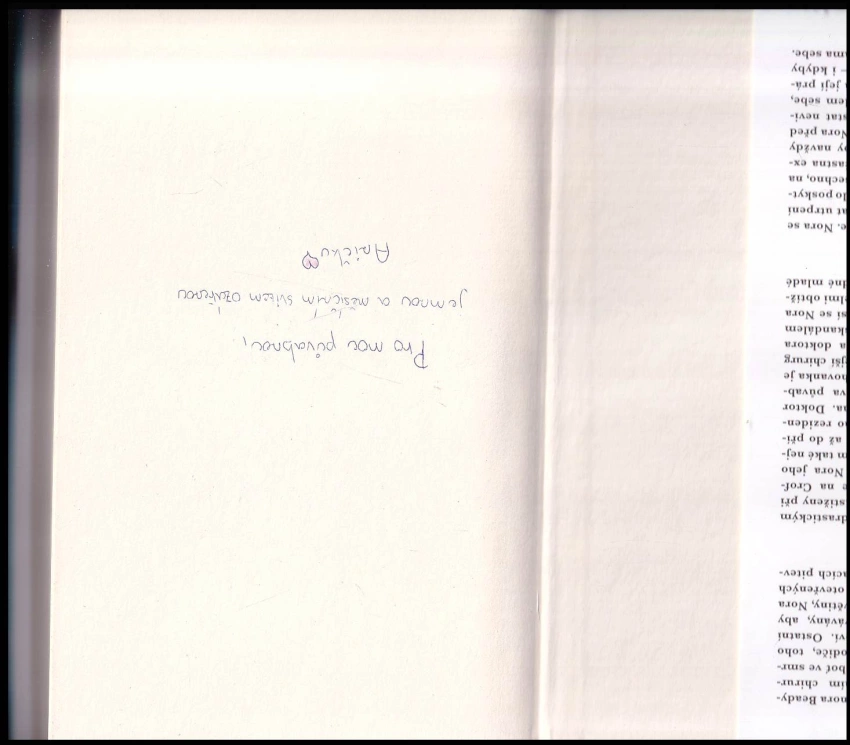 nora Beady-
ím chirur-
boť ve smr-
odiče, toho
vi. Ostatní
vávány, aby
větiny, Nora
otevřených
acích pitev-
drastickým
stiženy při
e na Crof-
Nora jeho
m také nej-
až do při-
o reziden-
na. Doktor
va půvab-
novanka je
jší chirurg
a doktora
skandálem
si se Nora
elmi obtíž-
dné mladé
e. Nora se
at utrpení
do poskyt-
echno, na
astna ex-
y navždy
Nora před
stat nevi-
em sebe,
její prá-
– i kdyby
ma sebe.
Pro moc půvabnou,
jemnou a měsíčním svitem ozářenou
Aničku